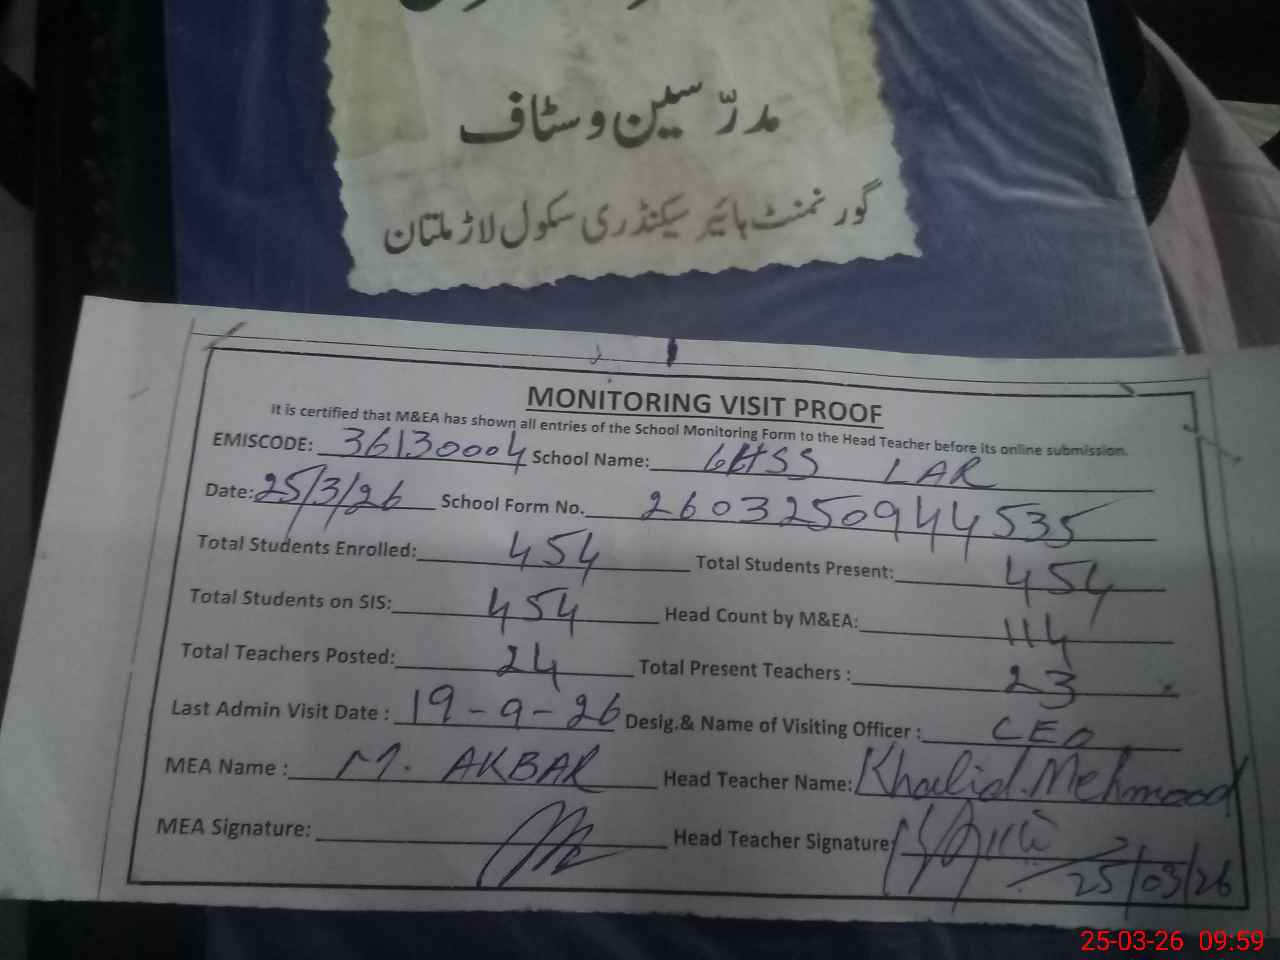 مدرّسین و سٹاف
گورنمنٹ ہائیر سیکنڈری سکول لاڑ ملتان
MONITORING VISIT PROOF
It is certified that M&EA has shown all entries of the School Monitoring Form to the Head Teacher before its online submission.
EMISCODE: 36130004 School Name: GHSS LAR
Date: 25/3/26 School Form No. 2603250944535
Total Students Enrolled: 454 Total Students Present: 454
Total Students on SIS: 454 Head Count by M&EA: 114
Total Teachers Posted: 24 Total Present Teachers : 23
Last Admin Visit Date : 19-9-26 Desig.& Name of Visiting Officer : CEO
MEA Name : M. AKBAR Head Teacher Name: Khalid Mehmood
MEA Signature: Head Teacher Signature
25/03/26
25-03-26 09:59